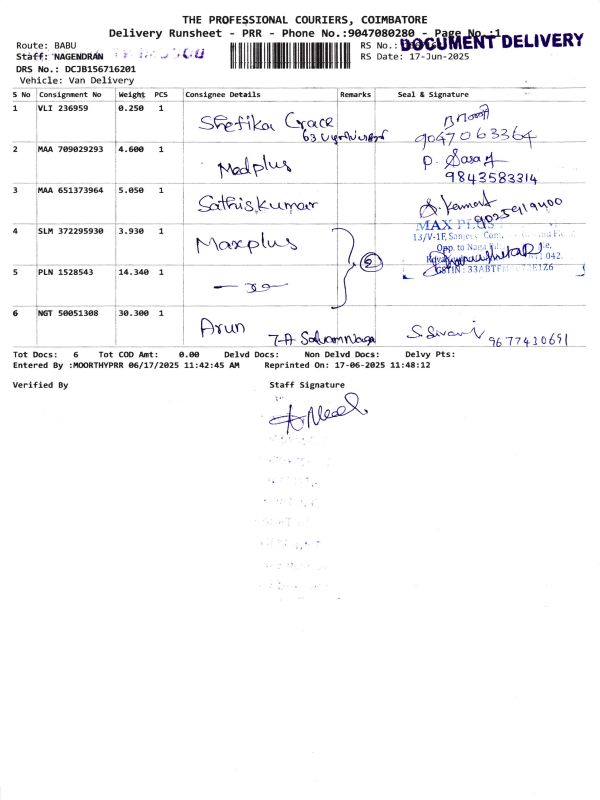 THE PROFESSIONAL COURIERS, COIMBATORE
Delivery Runsheet - PRR - Phone No.:9047080280 - Page No.:1
Route: BABU
RS No.:
DOCUMENT DELIVERY
Staff: NAGENDRAN
RS Date: 17-Jun-2025
DRS No.: DCJB156716201
Vehicle: Van Delivery
S No Consignment No Weight PCS Consignee Details Remarks Seal & Signature
1 VLI 236959 0.250 1 Shefika Grace
63
9047063364
2 MAA 709029293 4.600 1 Medplus P. Sasa
9843583314
3 MAA 651373964 5.050 1 Sathiskumar
9025919400
4 SLM 372295930 3.930 1 Maxplus
2
MAX PLUS
13/V-1F,
Opp. to Naga
GSTIN: 33ABTFM 1Z6
5 PLN 1528543 14.340 1
6 NGT 50051308 30.300 1 Arun
7-A
9677430691
Tot Docs: 6 Tot COD Amt: 0.00 Delvd Docs: Non Delvd Docs: Delvy Pts:
Entered By :MOORTHYPRR 06/17/2025 11:42:45 AM Reprinted On: 17-06-2025 11:48:12
Verified By Staff Signature